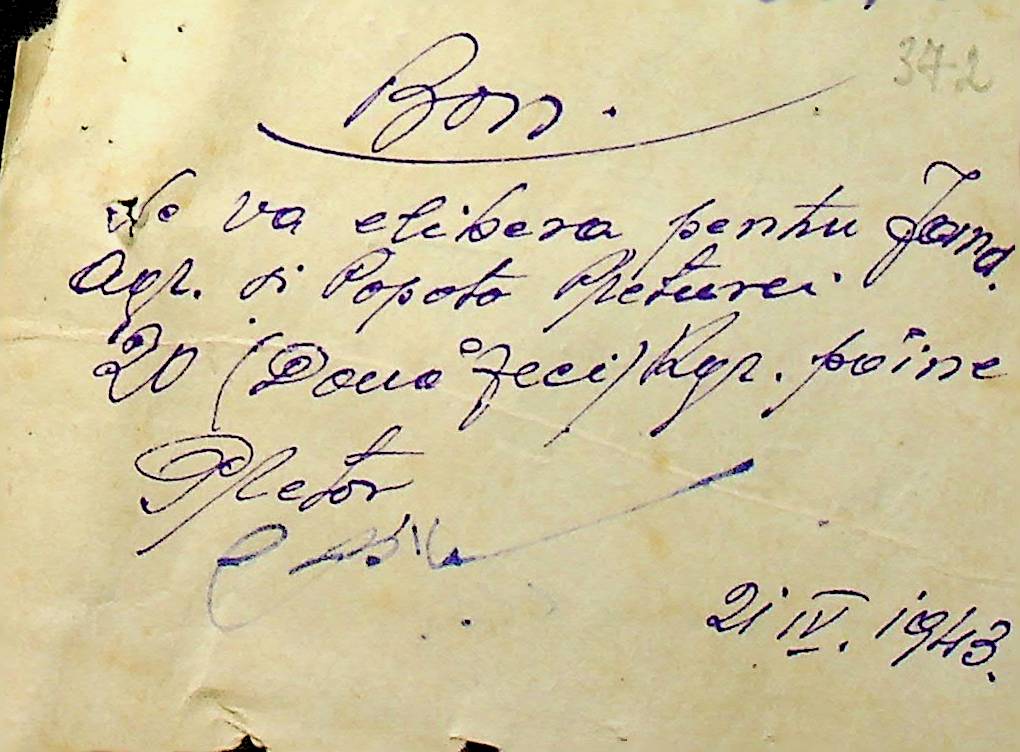 372
Bon.
Se va elibera pentru Jand.
Agr. si Popota Preturei
20 (Două zeci) Kgr. pâine
Pretor
21 IV. 1943.